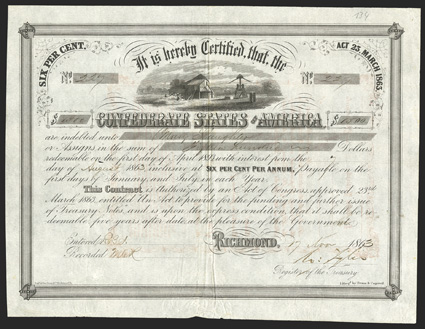 184
SIX PER CENT.
It is hereby Certified, that, the
ACT 23, MARCH 1863.
No
No
CONFEDERATE STATES OF AMERICA
$
$
are indebted unto
or Assigns in the sum of Dollars
redeemable on the first day of April with interest from the
day of August 1863 inclusive at SIX PER CENT PER ANNUM, Payable on
the first days of January and July in each Year.
This Contract is Authorized by an Act of Congress, approved 23rd
March 1863, Entitled An Act to provide for the funding and further issue
of Treasury Notes, and is upon the express condition, that it shall be re-
deemable five years after date, at the pleasure of the Government.
Entered
RICHMOND, 17 Nov 1863
Recorded
Tyler
Register of the Treasury